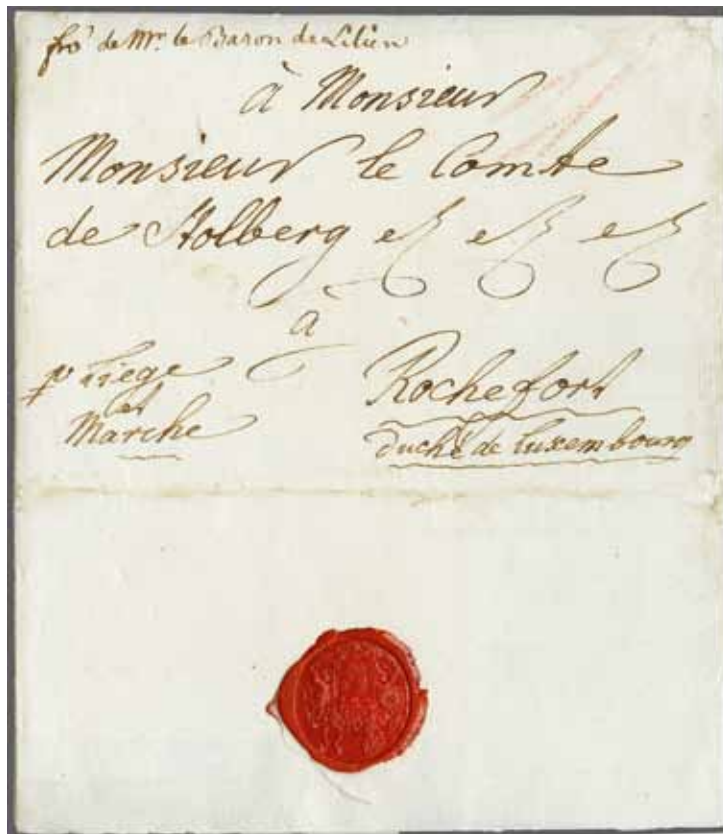 fro de Mr. le Baron de Lilien
à Monsieur
Monsieur le Comte
de Stolberg etc etc etc
à
pr Liege
et
Marche
Rochefort
duché de Luxembourg